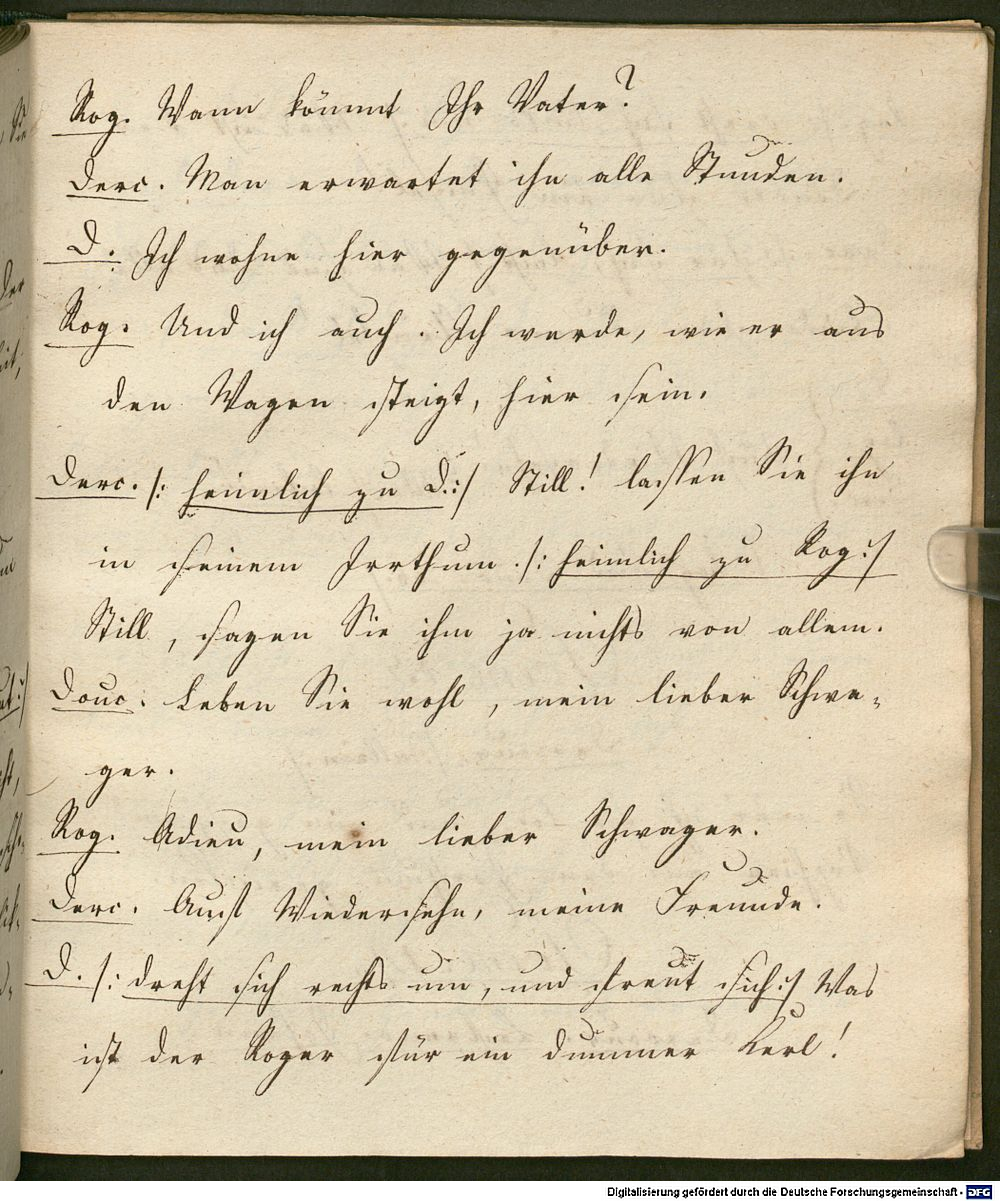 Rog. Wann kömmt Ihr Vater?
Derc. Man erwartet ihn alle Stunden.
D. Ich wohne hier gegenüber.
Rog. Und ich auch. Ich werde, wie er aus
den Wagen steigt, hier sein.
Derc. /: heimlich zu D.:/ Still! lassen Sie ihn
in seinem Irrthum. /: heimlich zu Rog:/
Still, sagen Sie ihm ja nichts von allem.
Douc. Leben Sie wohl, mein lieber Schwa-
ger.
Rog. Adieu, mein lieber Schwager.
Derc. Auf Wiedersehn, meine Freunde.
D. /: dreht sich rechts um, und freut sich:/ Was
ist der Roger für ein dummer Kerl!
Digitalisierung gefördert durch die Deutsche Forschungsgemeinschaft - DFG